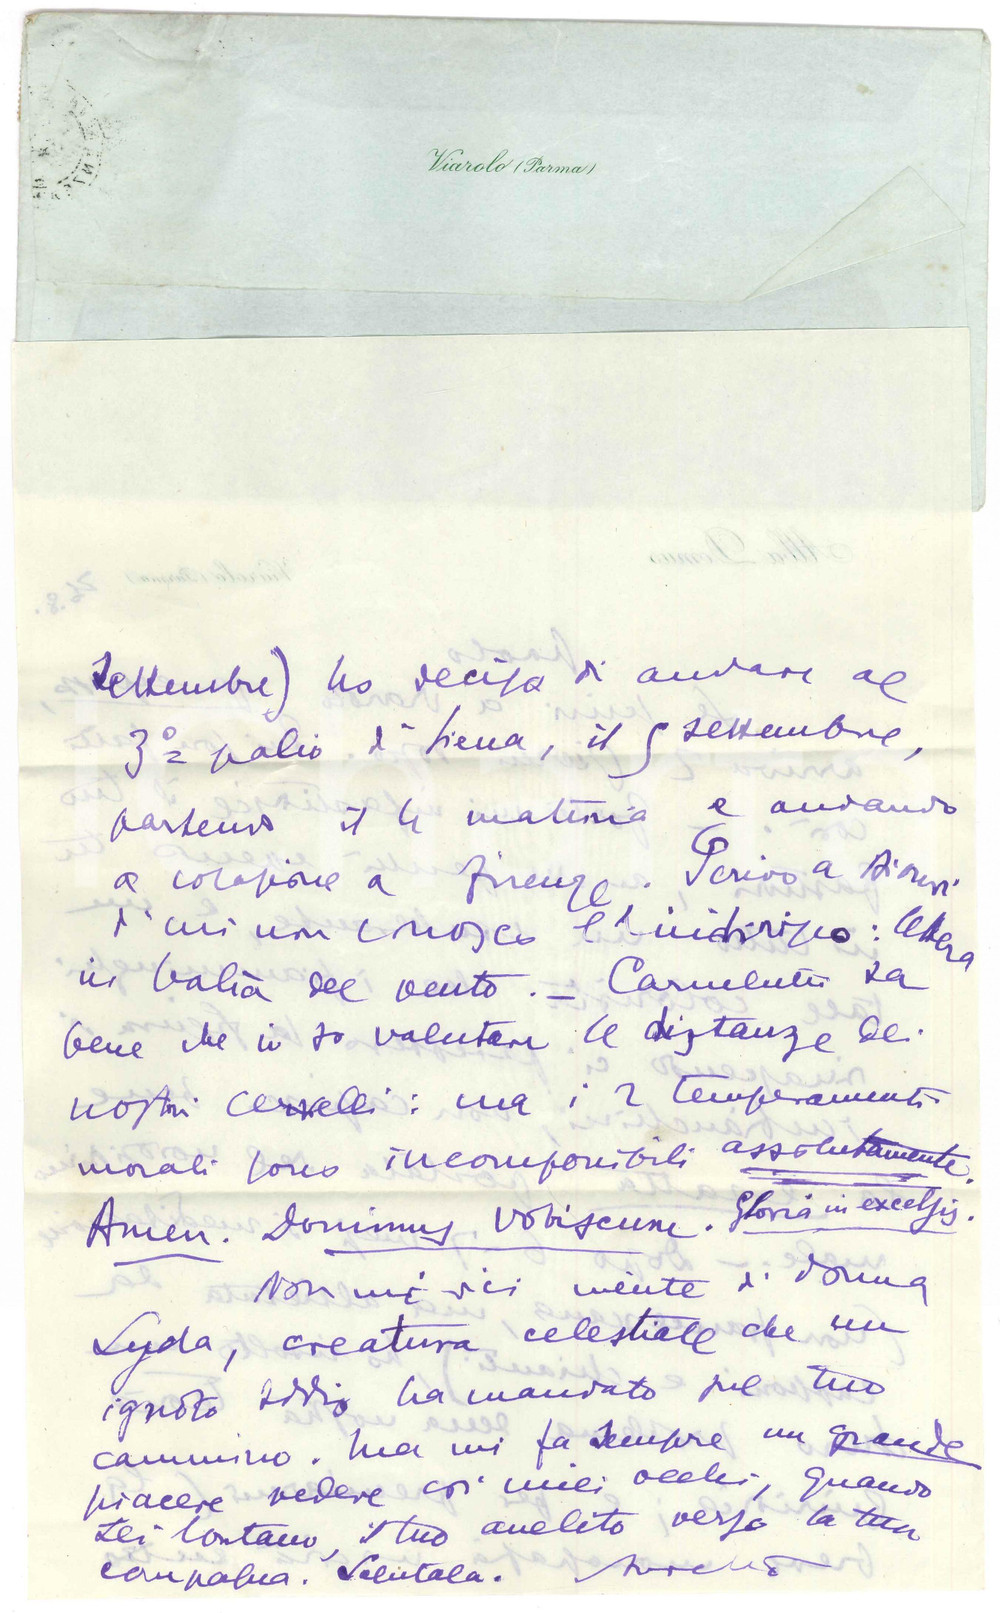 Viarolo (Parma)
Settembre) ho deciso di andare al
3º palio di Siena, il 5 settembre,
partendo il 4 mattina e andando
a colazione a Firenze. Scrivo a
di cui non conosco l'indirizzo: lettera
in balìa del vento. – Carnelutti sa
bene che io so valutare le distanze dei
nostri cervelli: ma i 2 temperamenti
morali sono incomponibili assolutamente.
Amen. Dominus vobiscum. Gloria in excelsis.
Non mi dici niente di donna
Lyda, creatura celestiale che un
ignoto Iddio ha mandato sul tuo
cammino. Ma mi fa sempre un grande
piacere vedere coi miei occhi, quando
sei lontano, il tuo anelito verso la tua
compagna. Salutala.